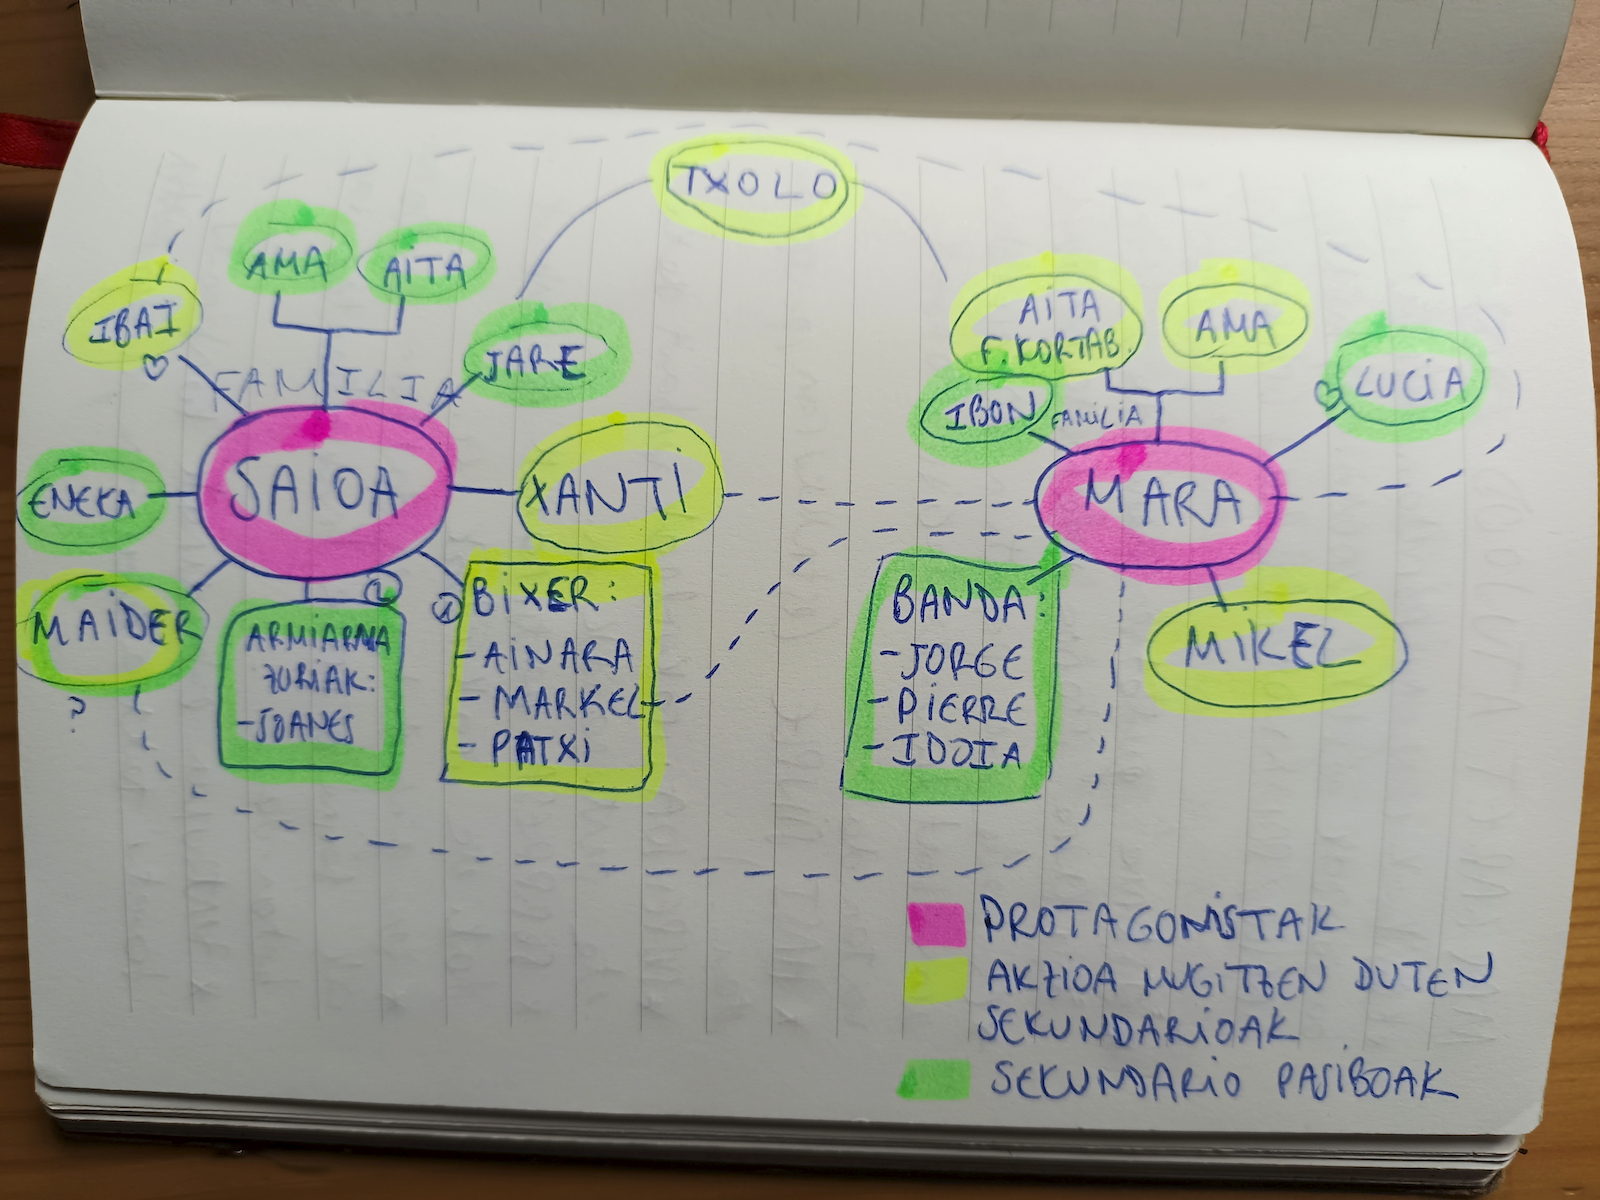 TXOLO
AMA
AITA
IBAI
JARE
FAMILIA
SAIOA
ENEKA
XANTI
MAIDER
?
2
ARMIARMA
ZURIAK:
-JOANES
1
BIXER:
-AINARA
- MARKEL
- PATXI
AITA
F. KORTAB.
AMA
LUCIA
IBON
FAMILIA
MARA
BANDA:
-JORGE
-PIERRE
-IDOIA
MIKEL
PROTAGONISTAK
AKZIOA MUGITZEN DUTEN
SEKUNDARIOAK
SEKUNDARIO PASIBOAK